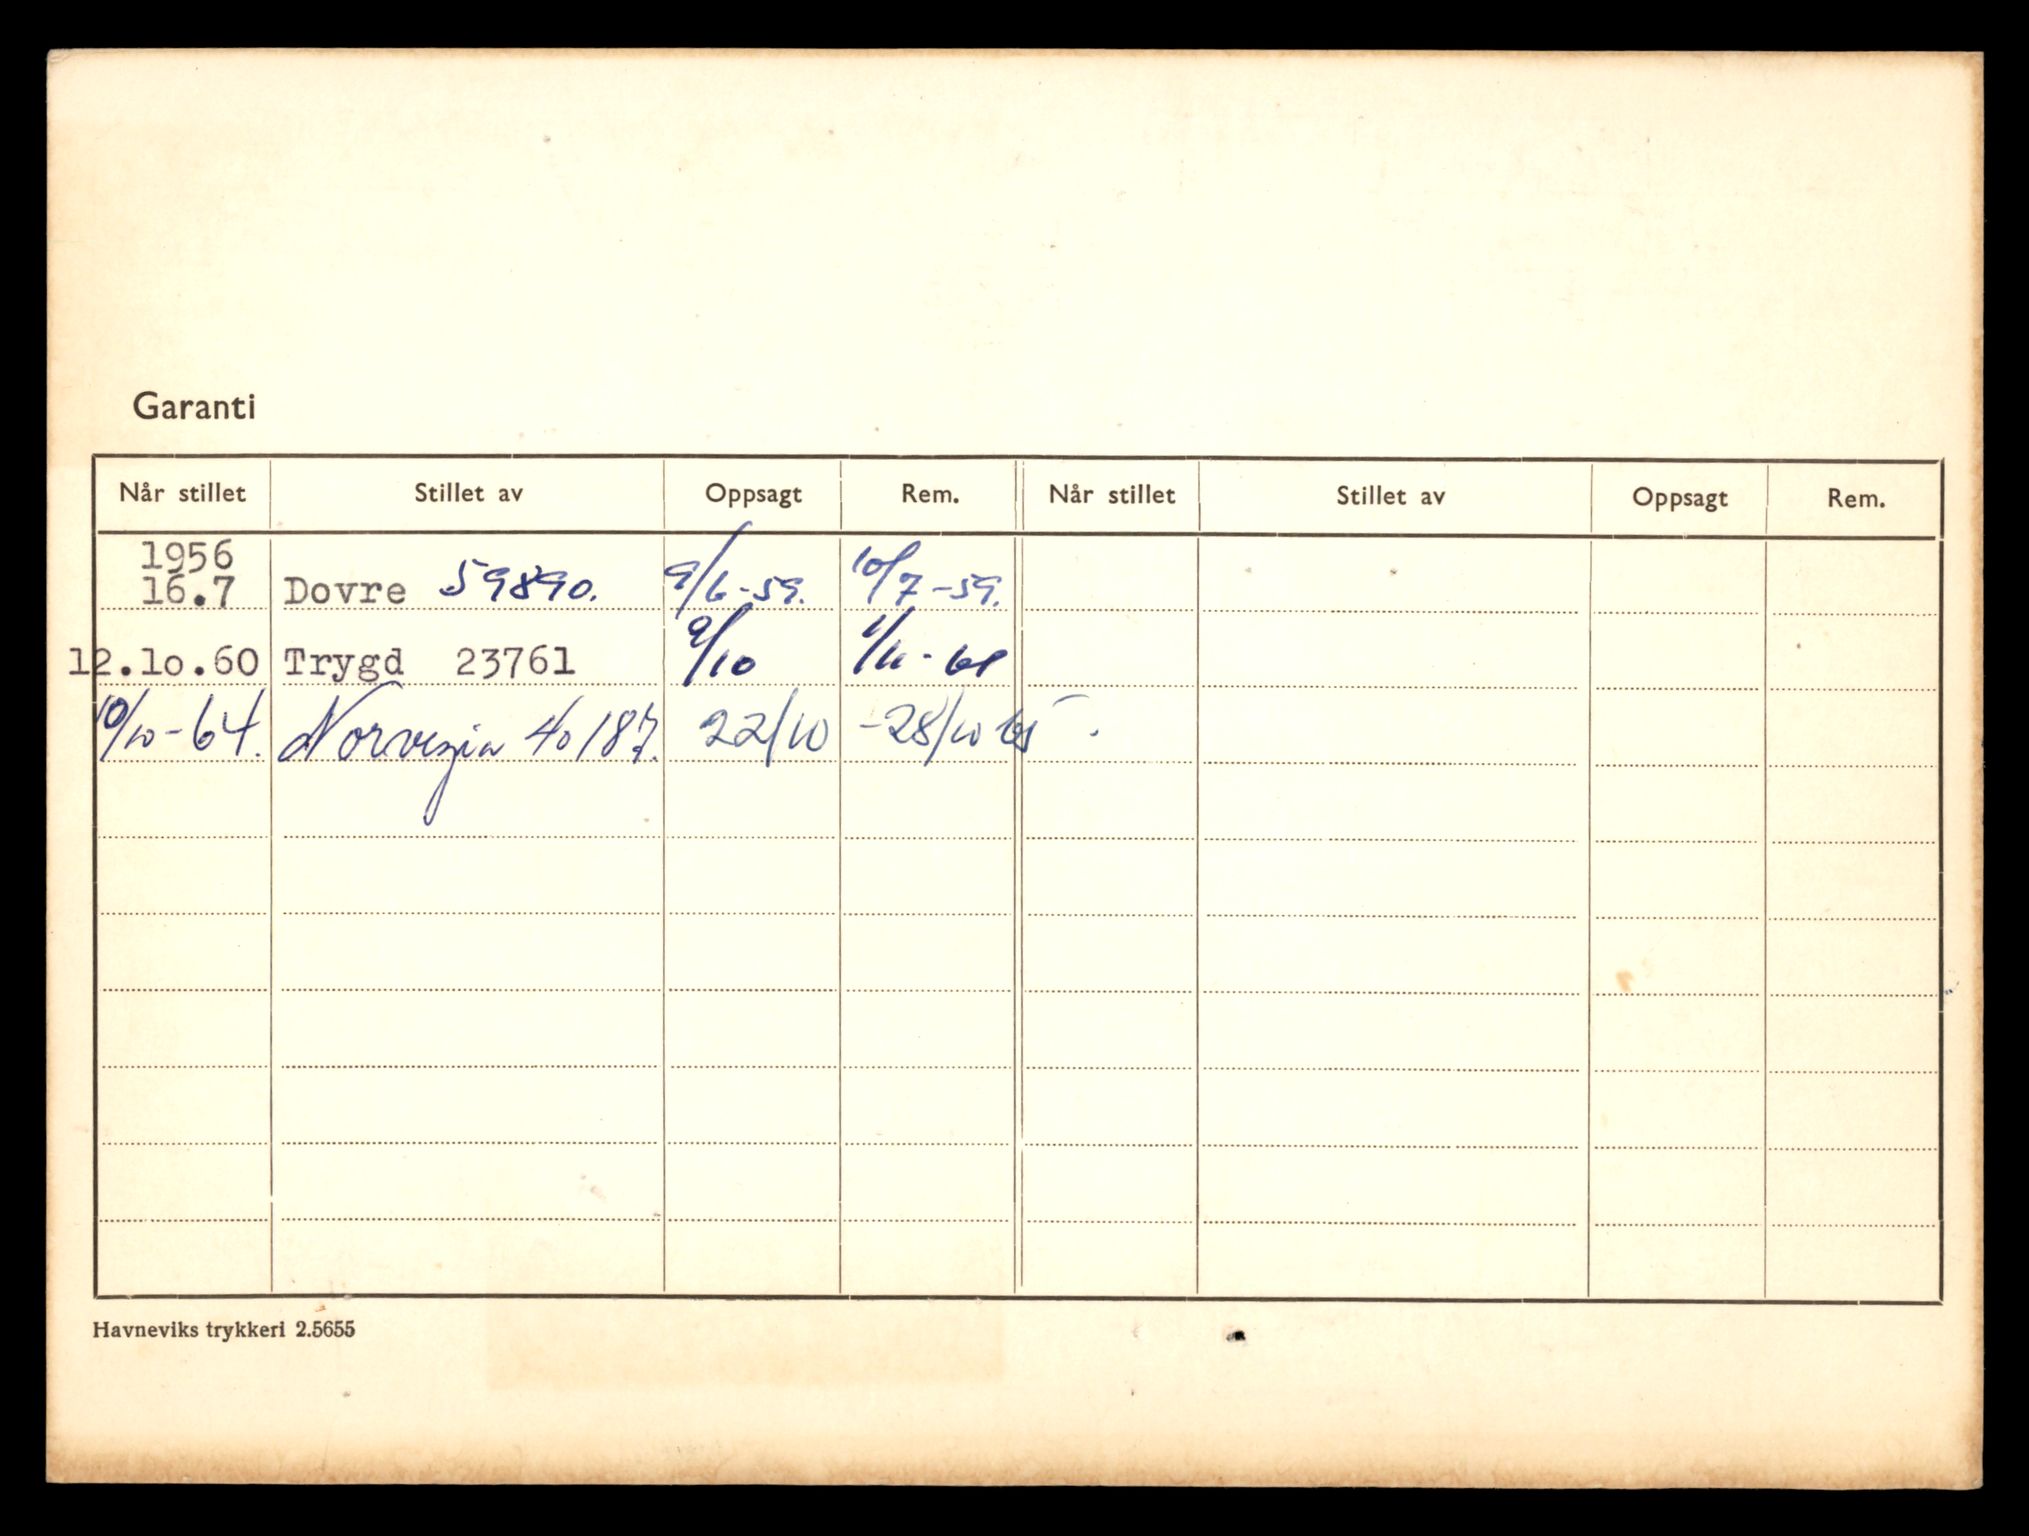 Garanti
Når stillet Stillet av Oppsagt Rem. Når stillet Stillet av Oppsagt Rem.
1956
16.7 Dovre 59890. 9/6-59. 10/7-59.
12.10.60 Trygd 23761 9/10 1/11-61
10/10-64. Norvegia 40187. 22/10 -28/10 65.
Havneviks trykkeri 2.5655